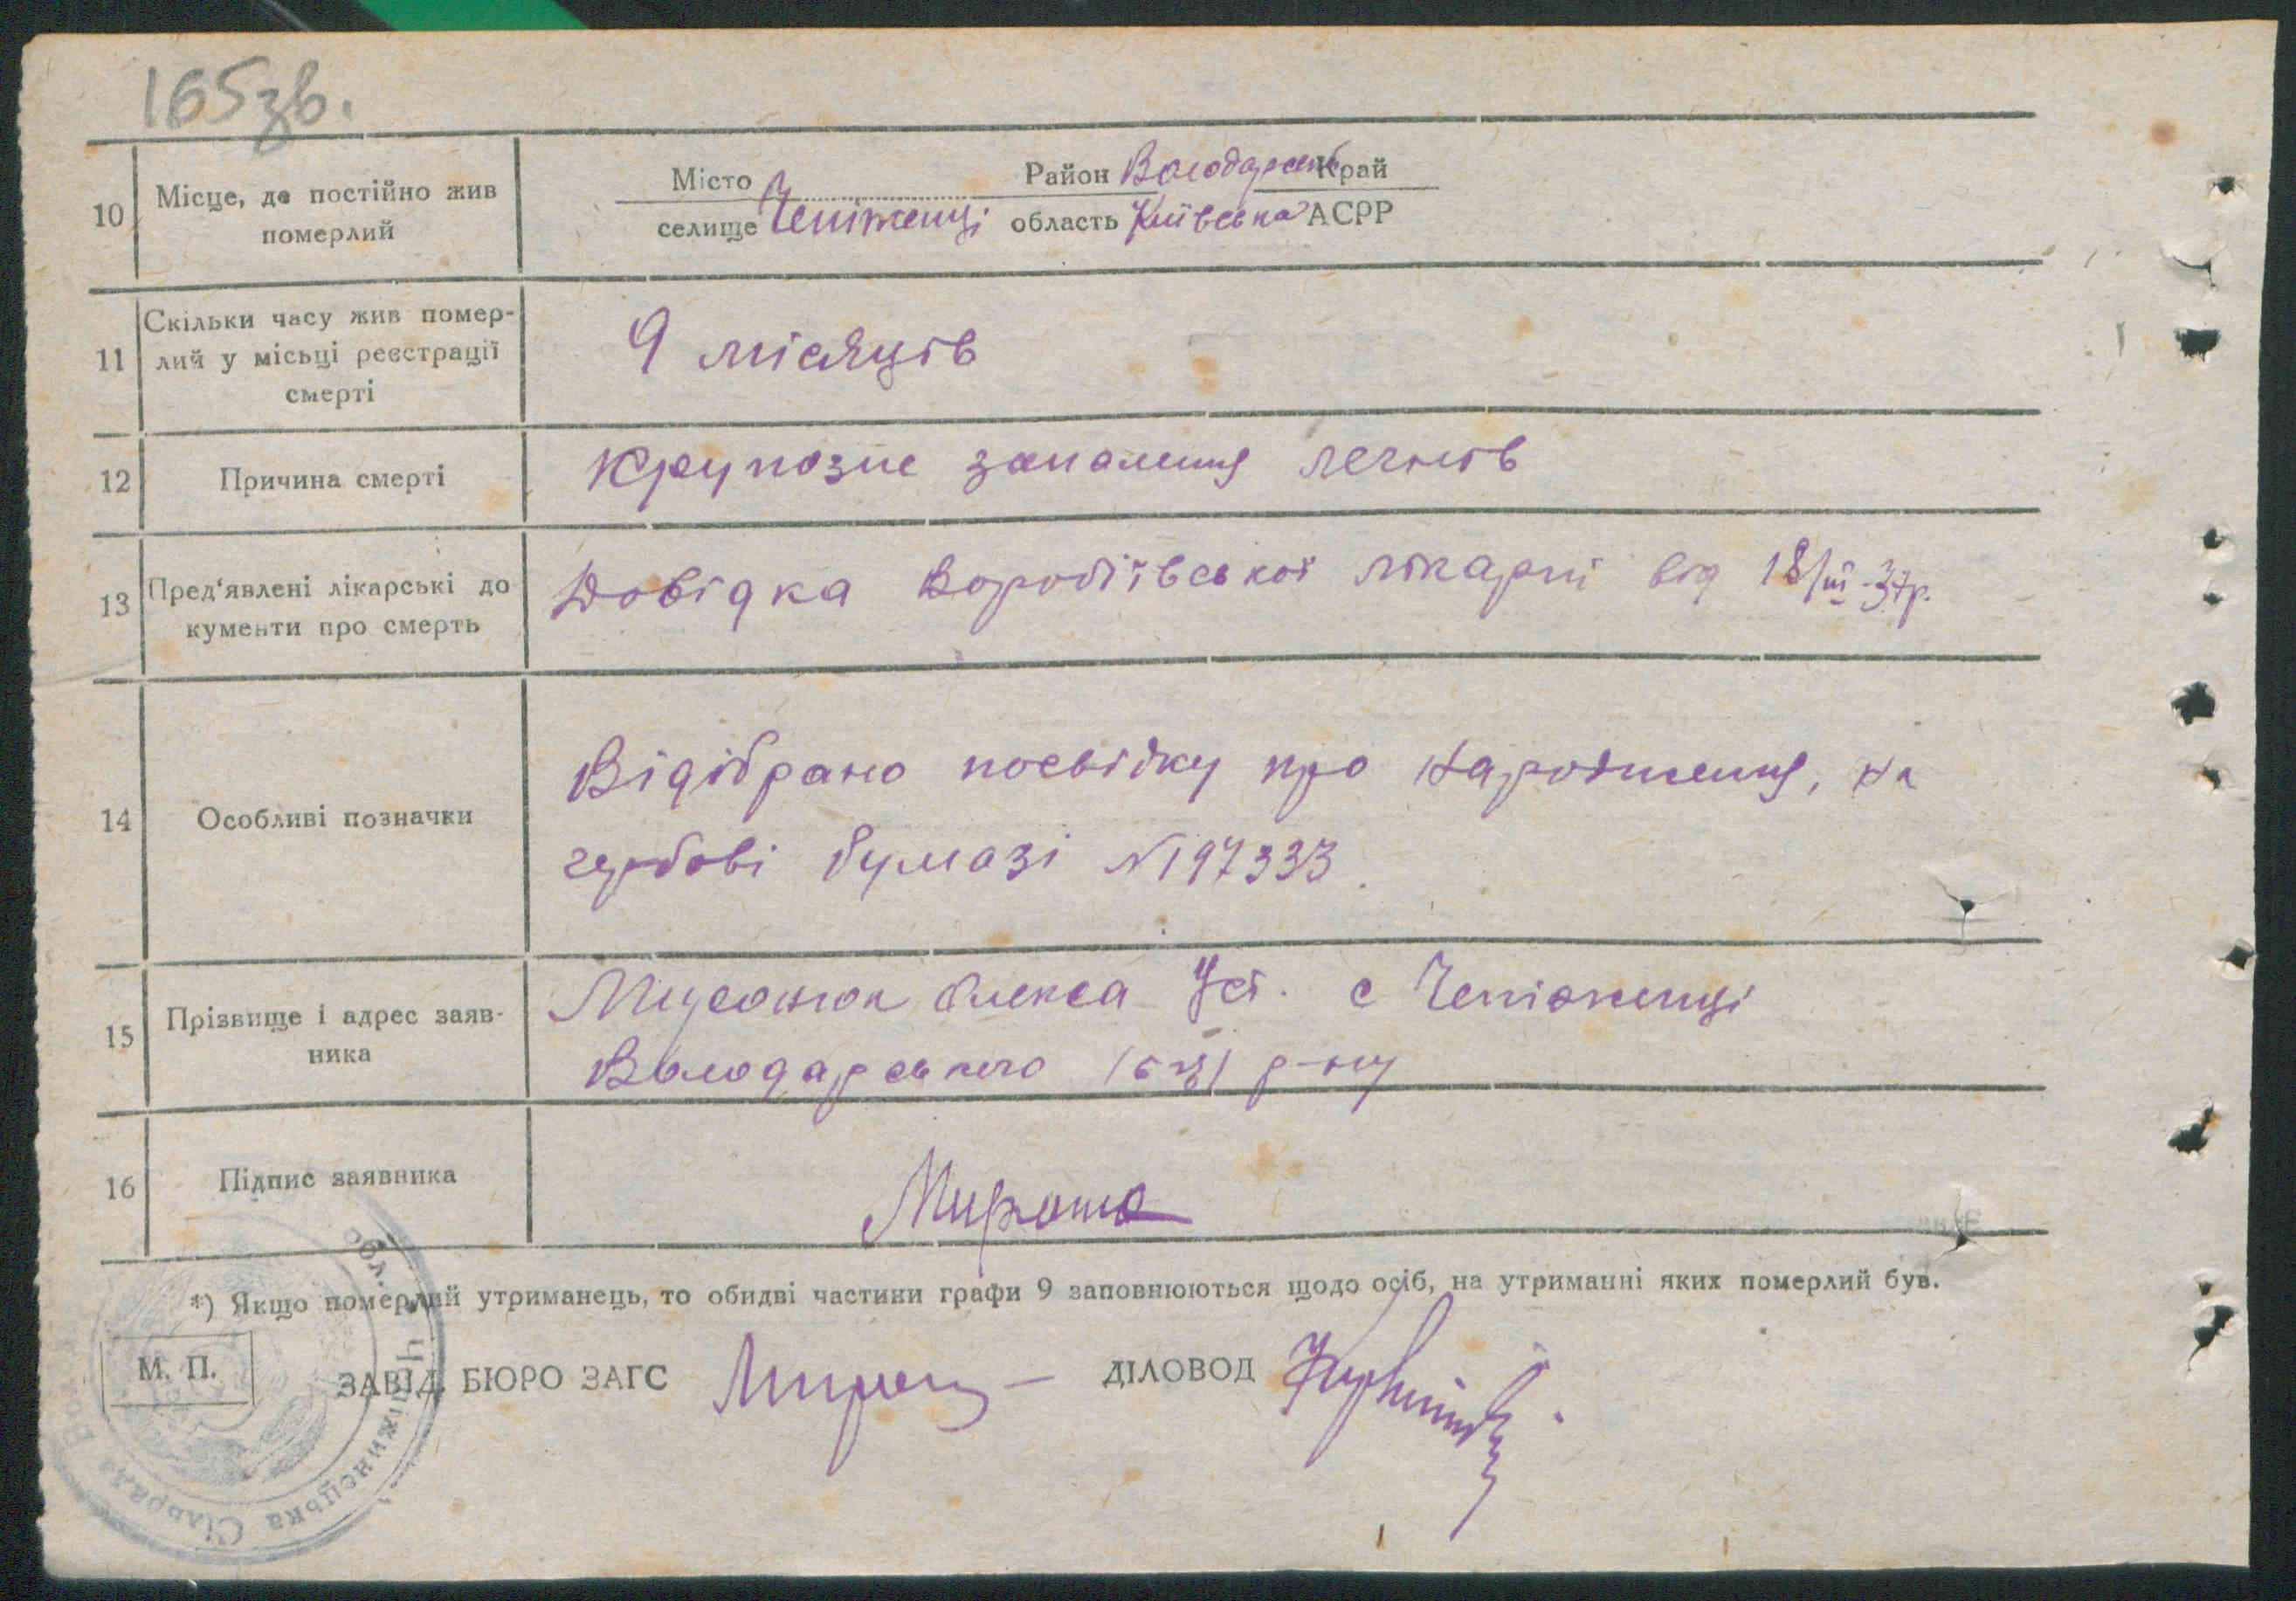 165зв.
10 Місце, де постійно жив померлий
Місто Район Володарськ Край
селище Чепіженці область Київська АСРР
11 Скільки часу жив помер-
лий у місьці реєстрації
смерті
9 місяців
12 Причина смерті
Крупозне запалення легнів
13 Пред'явлені лікарські до
кументи про смерть
Довідка Вородіївської лікарні від 18/III-37р.
14 Особливі позначки
Відібрано посвідку про народження, на
гербові бумазі №197333.
15 Прізвище і адрес заяв-
ника
Олекса Уст. с Чепіженці
Володарського р-ну
16 Підпис заявника
*) Якщо померлий утриманець, то обидві частини графи 9 заповнюються щодо осіб, на утриманні яких померлий був.
М. П. ЗАВІД. БЮРО ЗАГС ДІЛОВОД
обл. Ч піжинецька Сільрада